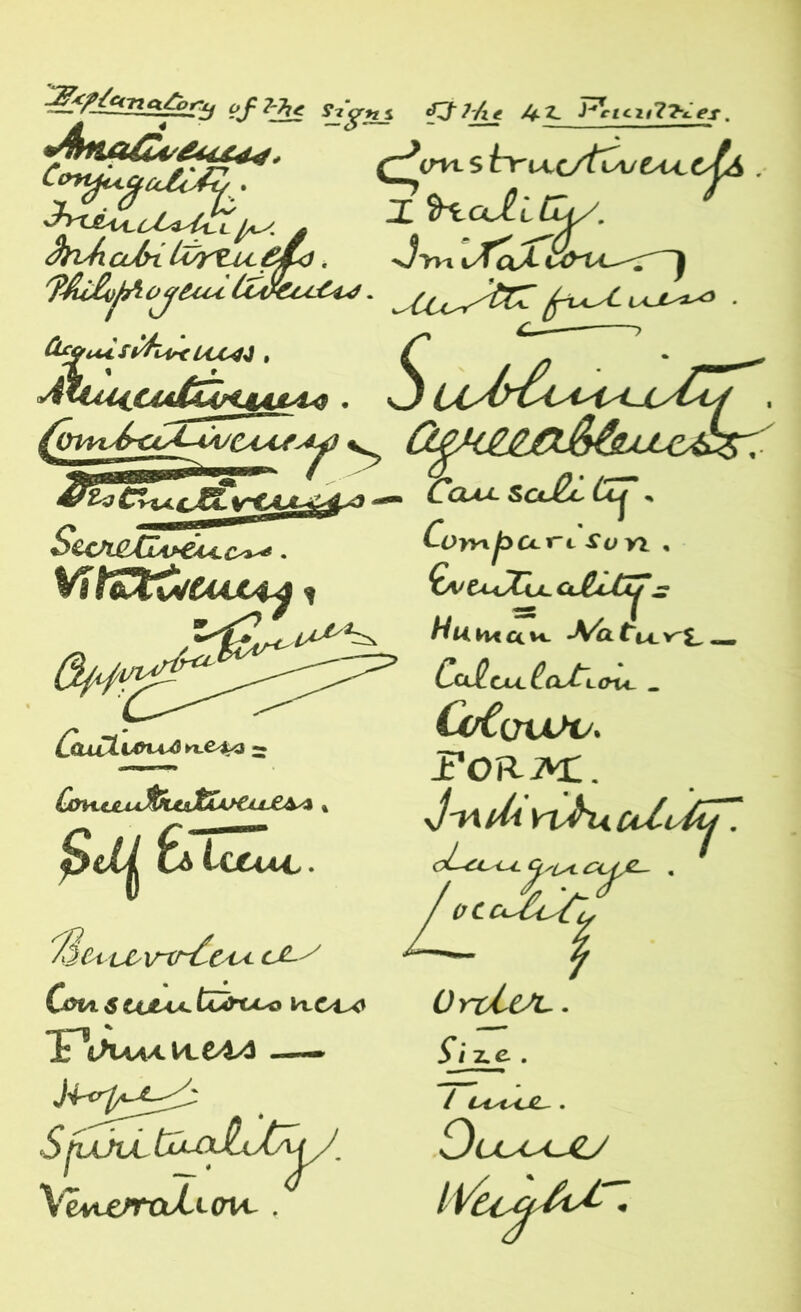 Explanatory of The Signs Of The 42 Faculties.
Amativeness.
Conjugality.
Inhabitiveness.
Acquisitiveness,
Alimentiveness.
Combativeness
Destructiveness —
Secretiveness.
Vitativeness,
Approbativeness
Cautiousness =
Concentrativeness.
Self Esteem.
Benevolence
Conscientiousness
Firmness —
Hope
Spirituality.
Veneration.
Constructiveness.
Ideality.
Imitation
Mirthfulness.
Sublimity.
Agreeableness.
Causality.
Comparison.
Eventuality =
Human Nature —
Calculation —
Colour.
FORM.
Individuality.
Language.
Locality
Order.
Size.
Time.
Tune
Weight.